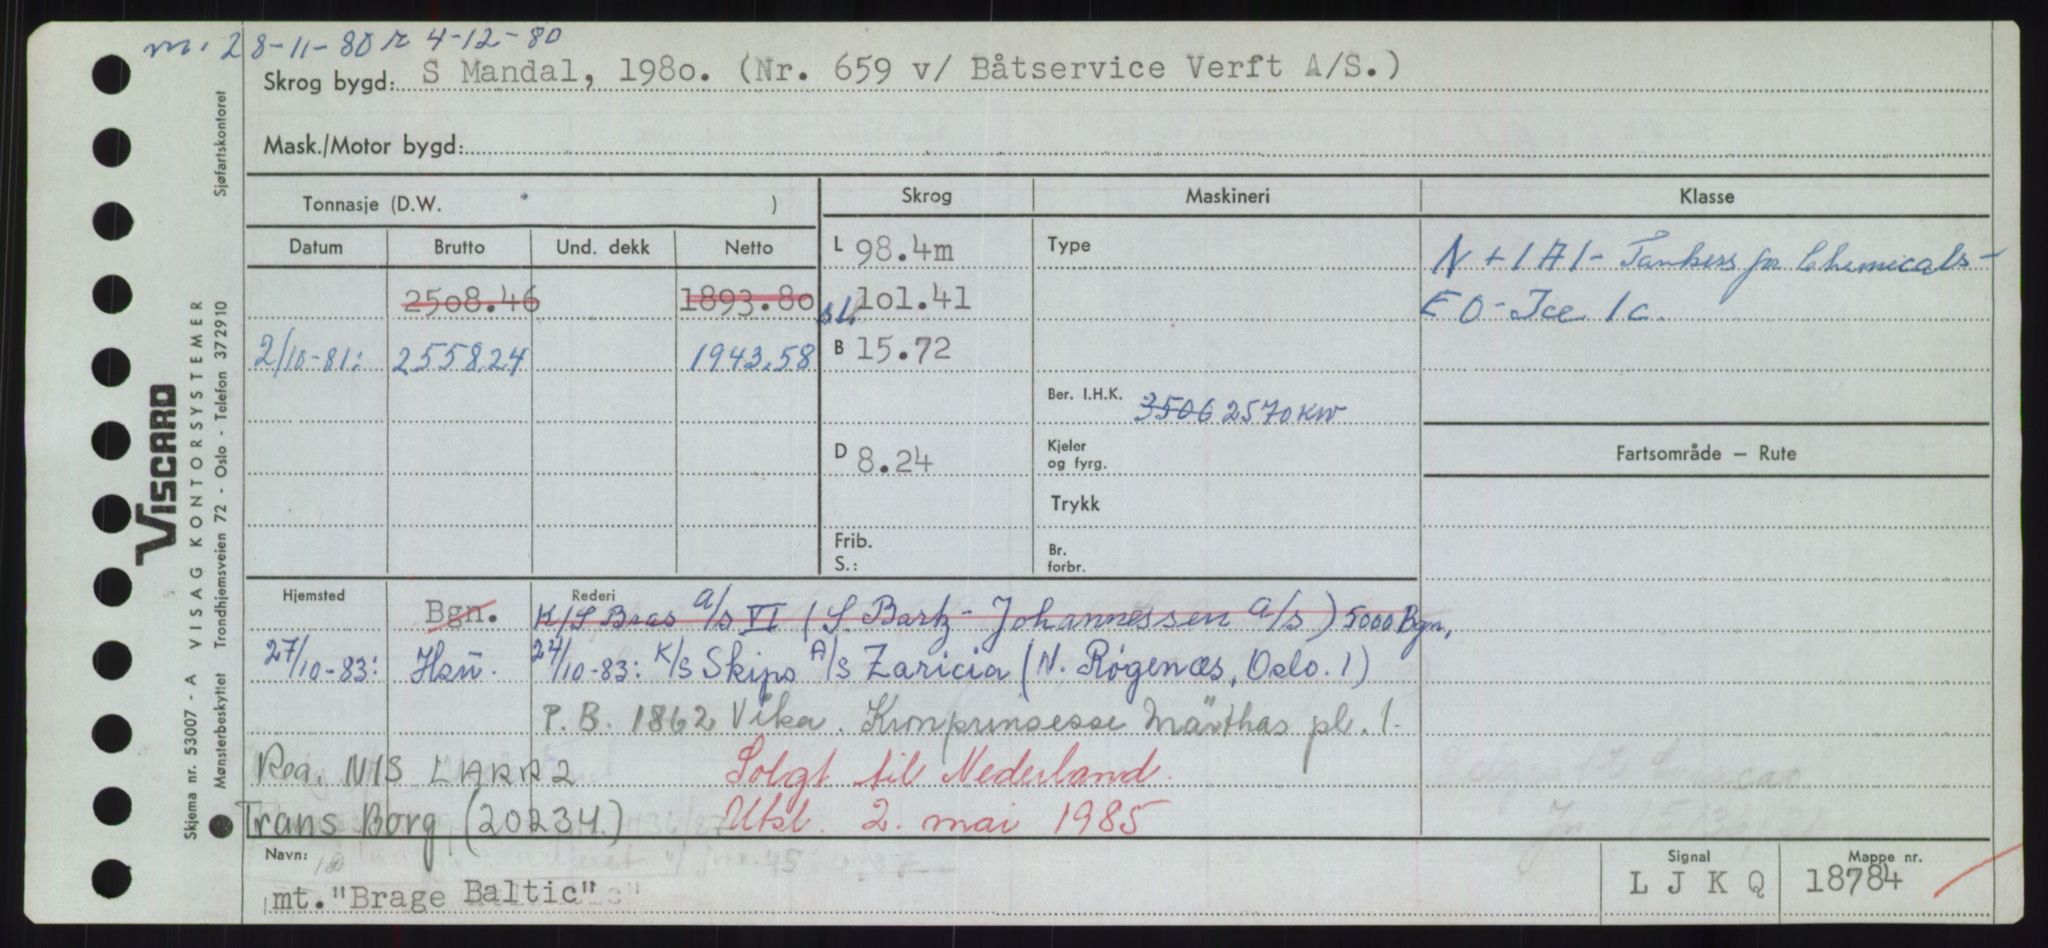 m. 28-11-80 r 4-12-80
Skrog bygd: S Mandal, 1980. (Nr. 659 v/ Båtservice Verft A/S.)
Mask./Motor bygd:
Tonnasje (D.W. )
Skrog Maskineri Klasse
Datum Brutto Und. dekk Netto
L 98.4m Type N + 1A1 - Tankers for Chemicals -
2508.46 1893.80 101.41 EO - Ice 1c.
2/10-81: 2558.24 1943.58 B 15.72
Ber. I.H.K. 3506 2570 KW
D 8.24 Kjeler og fyrg. Fartsområde — Rute
Trykk
Frib. S.: Br. forbr.
Hjemsted Rederi
Bgn. K/S Bras A/S VI (S. Bartz-Johannessen A/S) 5000 Bgn.
27/10-83: Hsu. 27/10-83: K/S Skips A/S Zaricia (N. Røgenæs, Oslo. 1)
P.B. 1862 Vika. Kronprinsesse Märthas pl. 1.
Reg. NIS LARR2 Solgt til Nederland.
Trans Borg (20234.) Utsl. 2. mai 1985
Navn: Signal Mappe nr.
mt."Brage Baltic" L J K Q 18784
VISCARD
Skjema nr. 53007 - A VISAG KONTORSYSTEMER
Mønsterbeskyttet Trondhjemsveien 72 - Oslo - Telefon 372910 Sjøfartskontoret